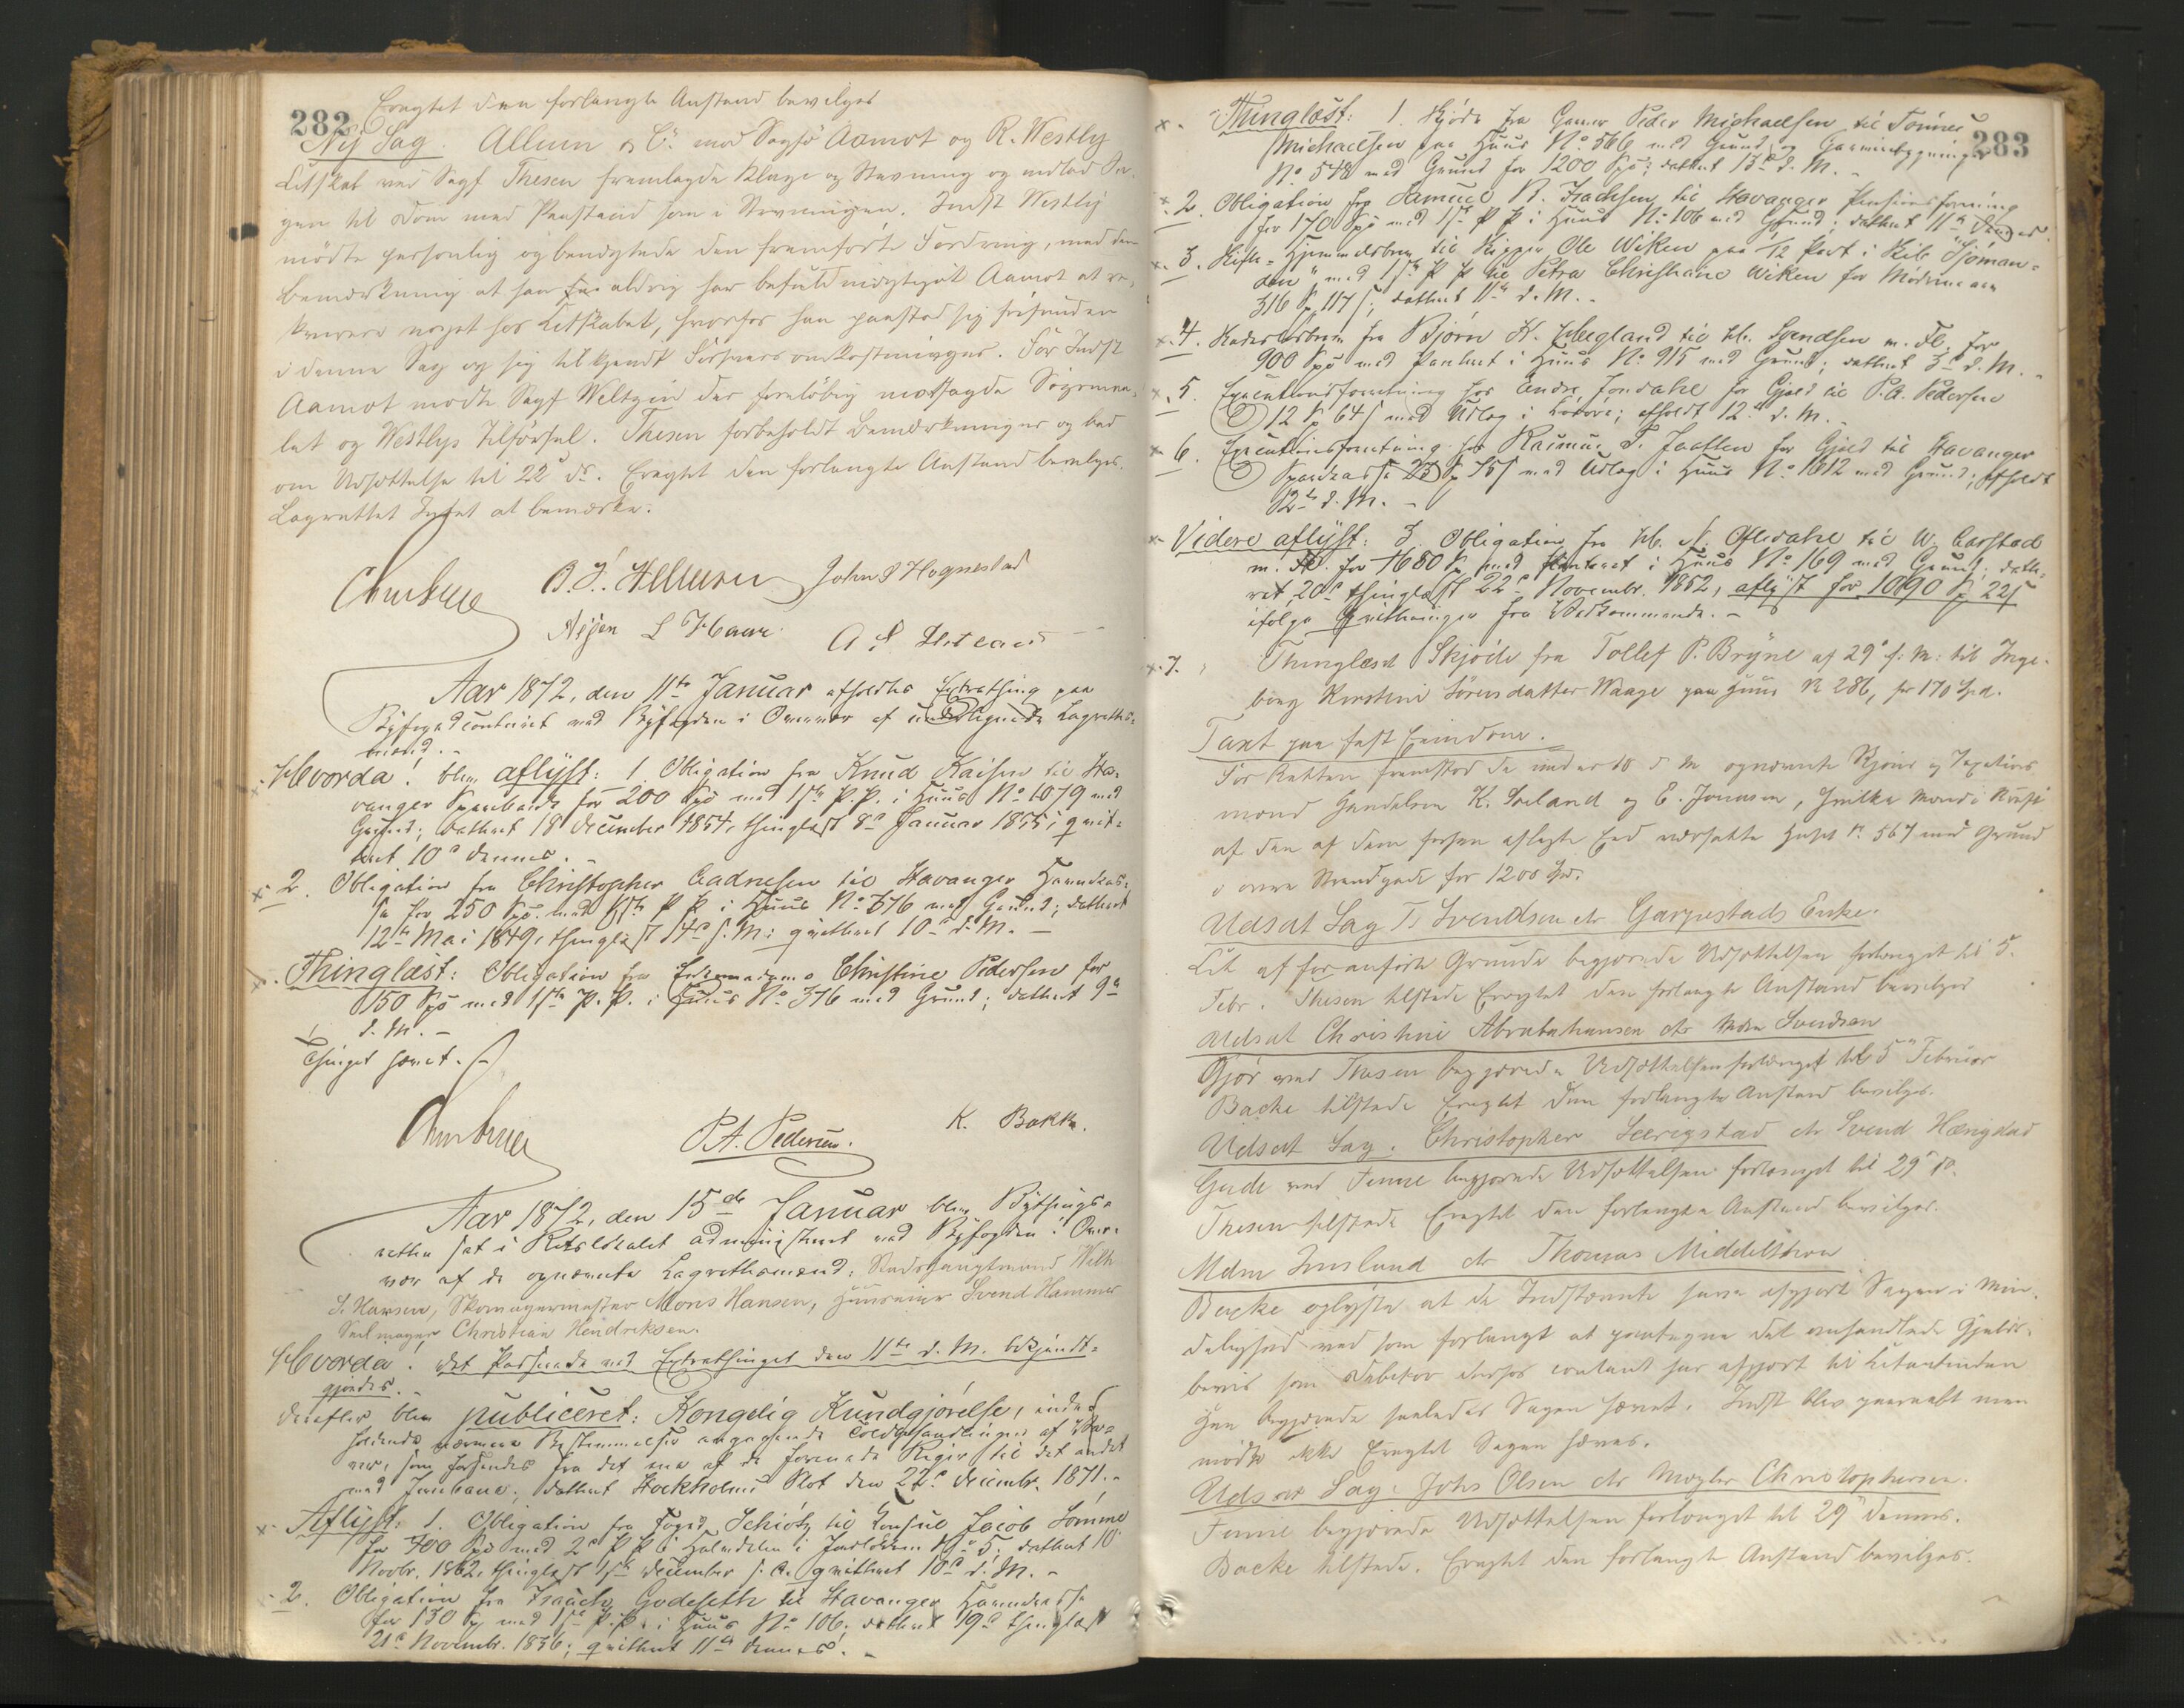 282
Eragtet den forlangte Anstand bevilges
Ny Sag. Allum & Co. mod Sagfø Aamot og R. Westly
Citskab ved Sagf Thesen fremlagde Klage og Stevning og indlod Sa-
gen til Dom med Paastand som i Stevningen. Indst Westly
mødte personlig og benægtede den fremførte Fordring, med den
Bemærkning at han aldrig har befuldmægtiget Aamot at re-
kvirere noget hos Citskabet, hvorfor han paastod sig frifunden
i denne Sag og sig tilkjendt Forsvarsomkostninger. For Indst
Aamot mødte Sagf Weltzin der foreløbig modsagde Søgemaa-
let og Westlys Tilførsel. Thesen forbeholdt Bemærkninger og bad
om Udsættelse til 22 ds. Eragtet den forlangte Anstand bevilges.
Lagrettet Intet at bemærke.
John S Hognestad
Aar 1872, den 11te Januar afholdtes Extrathing paa
Byfogedcontoiret ved Byfogden i Overvær af undertegnede Lagrettes-
mænd.
Hvorda! blev aflyst: 1. Obligation fra Knud Kaisen til Sta-
vanger Sparebank for 200 Spd med 1ste P.P. i Huus No 1079 med
Grund; dateret 18 December 1854, thinglæst 8de Januar 1855; qvit-
teret 10de dennes.
2. Obligation fra Christopher Aadnesen til Stavanger Havnekas-
se for 250 Spd. med 1ste P P i Huus No 376 med Grund; dateret
12te Mai 1849, thinglæst 14de s. M.; qvitteret 10de d. M.
Thinglæst: Obligation fra Enkemadame Christine Pedersen for
150 Spd med 1ste P.P. i Huus No 376 med Grund; dateret 9de
d. M.
Thinget hævet.
P.A. Pedersen. K. Bakke.
Aar 1872, den 15de Januar blev Bythings-
retten sat i Retslokalet administreret ved Byfogden i Over-
vær af de opnævnte Lagrettesmænd: Stadshauptmand Wilh
S. Hansen, Skomagermester Mons Hansen, Huuseier Svend Hammer
Seilmager Christian Hendriksen.
Hvorda! det Passerede ved Extrathinget den 11te d. M. bekjendt-
gjordes.
Derefter blev publiceret: Kongelig Kundgjørelse, inde-
holdende nærmere Bestemmelser angaaende Toldbehandlingen af Va-
rer, som forsendes fra det ene af de forenede Riger til det andet
med Jernbane; dateret Stockholms Slot den 22de Decembr. 1871.
Aflyst: 1. Obligation fra Foged Schiøtz til Consul Jacob Sømme
for 700 Spd med 2den P P i No 5; dateret 10
Novbr. 1862, thinglæst 1ste December s. A. qvitteret 10de d. M.
2. Obligation fra Isach Godeseth til Stavanger Havnekasse
for 130 Spd med 1ste P.P. i Huus No 106; dateret 19de thinglæst
21de Novembr. 1836; qvitteret 11te dennes.
283
Thinglæst: 1. Skjøde fra Garver Peder Michaelsen til Tønnes
Michaelsen paa Huus No 566 med Grund og Garveribygningen
No 548 med Grund for 1200 Spd; dateret 13de d. M.
2. Obligation fra Samuel B. Isachsen til Stavanger Pensionsforening
for 170 Spd med 1ste P P i Huus No 106 med Grund; dateret 11te dennes.
3. Skifte-Hjemmelsbrev til Skipper Ole Wiken paa 1/12 Part i Skib "Sjøman-
den" med 1ste P P til Petra Christiane Wiken for Mødrenearv
316 Sp 117 s; dateret 11te d. M.
4. Kadastersbrev fra Bjørn K. Hegland til Hr. Svendsen m. Fl. for
900 Spd med Panteret i Huus No 915 med Grund; dateret 3de d. M.
5. Executionsforretning hos Endre Jondahl for Gjeld til P.A. Pedersen
12 Sp 64 s med Udlæg i Løsøre; afholdt 12te d. M.
6. Executionsforretning hos Rasmus T. Jaatten for Gjeld til Stavanger
Sparekasse med Udlæg i Huus No 1612 med Grund; afholdt
12te d. M.
Videre aflyst: 3. Obligation fra Hr. N. Oftedahl til W. Carstad
m. Fl. for 1680 Sp med Panteret i Huus No 169 med Grund; date-
ret 20de thinglæst 22de Novembr. 1852, aflyst for 1090 Sp 22 s
ifølge Qvitteringer fra Vedkommende.
7. Thinglæst Skjøde fra Tollef P. Bryne af 29de f. M. til Inge-
borg Kirstine Sørensdatter Waage paa Huus No 286, for 170 Spd.
Taxt paa fast Eiendom.
For Retten fremstod de under 10 d M opnævnte Skjøns og Taxations
mænd Gundersen K. Soeland og E. Jonassen, hvilke Mænd i Kraft
af den af dem forhen aflagte Eed værdsatte Huset No 567 med Grund
i øvre Strandgade for 1200 Spd.
Udsat Sag T. Svendsen ctr Garpestads Enke.
Cit af foranførte Grunde begjærede Udsættelsen forlænget til 5.
Febr. Thesen tilstede Eragtet den forlangte Anstand bevilges
Udsat Christine Abrahamsen ctr Mdm Svendsen
Gjør ved Thesen begjærede Udsættelsen forlænget til 5te Februar
Backe tilstede Eragtet den forlangte Anstand bevilges.
Udsat Sag. Christopher Leerigstad ctr Svend Hærigstad
Gude ved Finne begjærede Udsættelsen forlænget til 29de ds.
Thesen tilstede Eragtet den forlangte Anstand bevilges.
Mdm Imsland ctr Thomas Middelthon
Backe oplyste at de Indstævnte havde afgjort Sagen i Min-
delighed ved som forlangt at paategne det omhandlede Gjelds-
bevis som Debitor derfor contant har afgjort til Citantinden
Han begjærede saaledes Sagen hævet. Indst blev paaraabt men
mødte ikke Eragtet Sagen hæves.
Udsat Sag. Johs Olsen ctr Mægler Christophersen.
Finne begjærede Udsættelsen forlænget til 29de dennes.
Backe tilstede. Eragtet den forlangte Anstand bevilges.